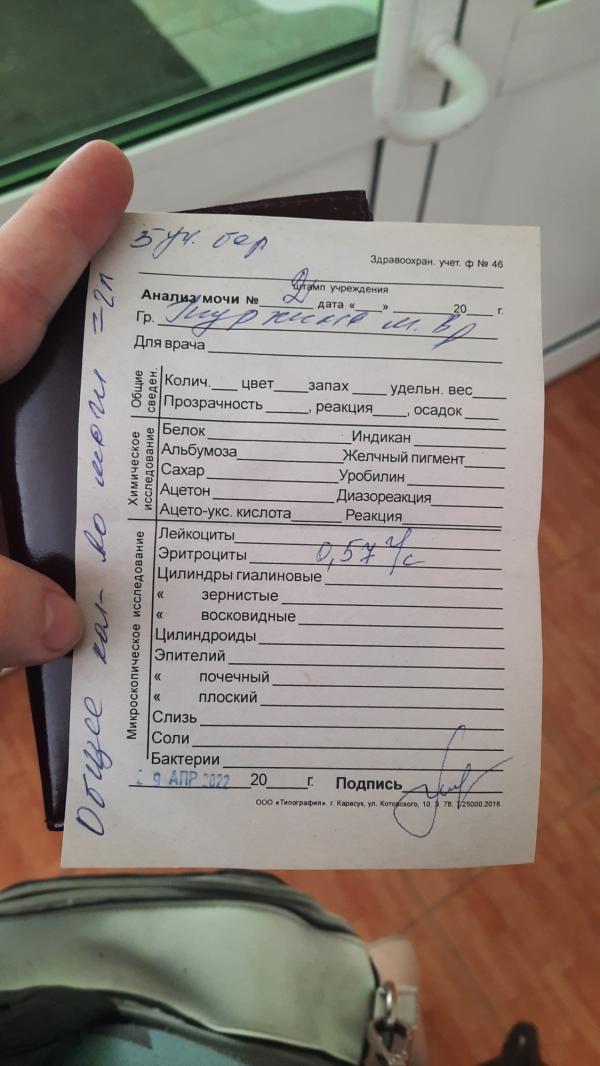 5 уч. бер
Здравоохран. учет. ф № 46
штамп учреждения
Анализ мочи № 2 дата « » 20 г.
Гр.
Для врача
Общие сведен.
Колич. цвет запах удельн. вес
Прозрачность , реакция , осадок
Химическое исследование
Белок Индикан
Альбумоза Желчный пигмент
Сахар Уробилин
Ацетон Диазореакция
Ацето-укс. кислота Реакция
Микроскопическое исследование
Лейкоциты
Эритроциты 0,57 г/с
Цилиндры гиалиновые
« зернистые
« восковидные
Цилиндроиды
Эпителий
« почечный
« плоский
Слизь
Соли
Бактерии
2 9 АПР 2022 20 г. Подпись
ООО «Типография» г. Карасук, ул. Котовского, 10. З. 78. Т.25000.2016.
Общее кол-во мочи =2л